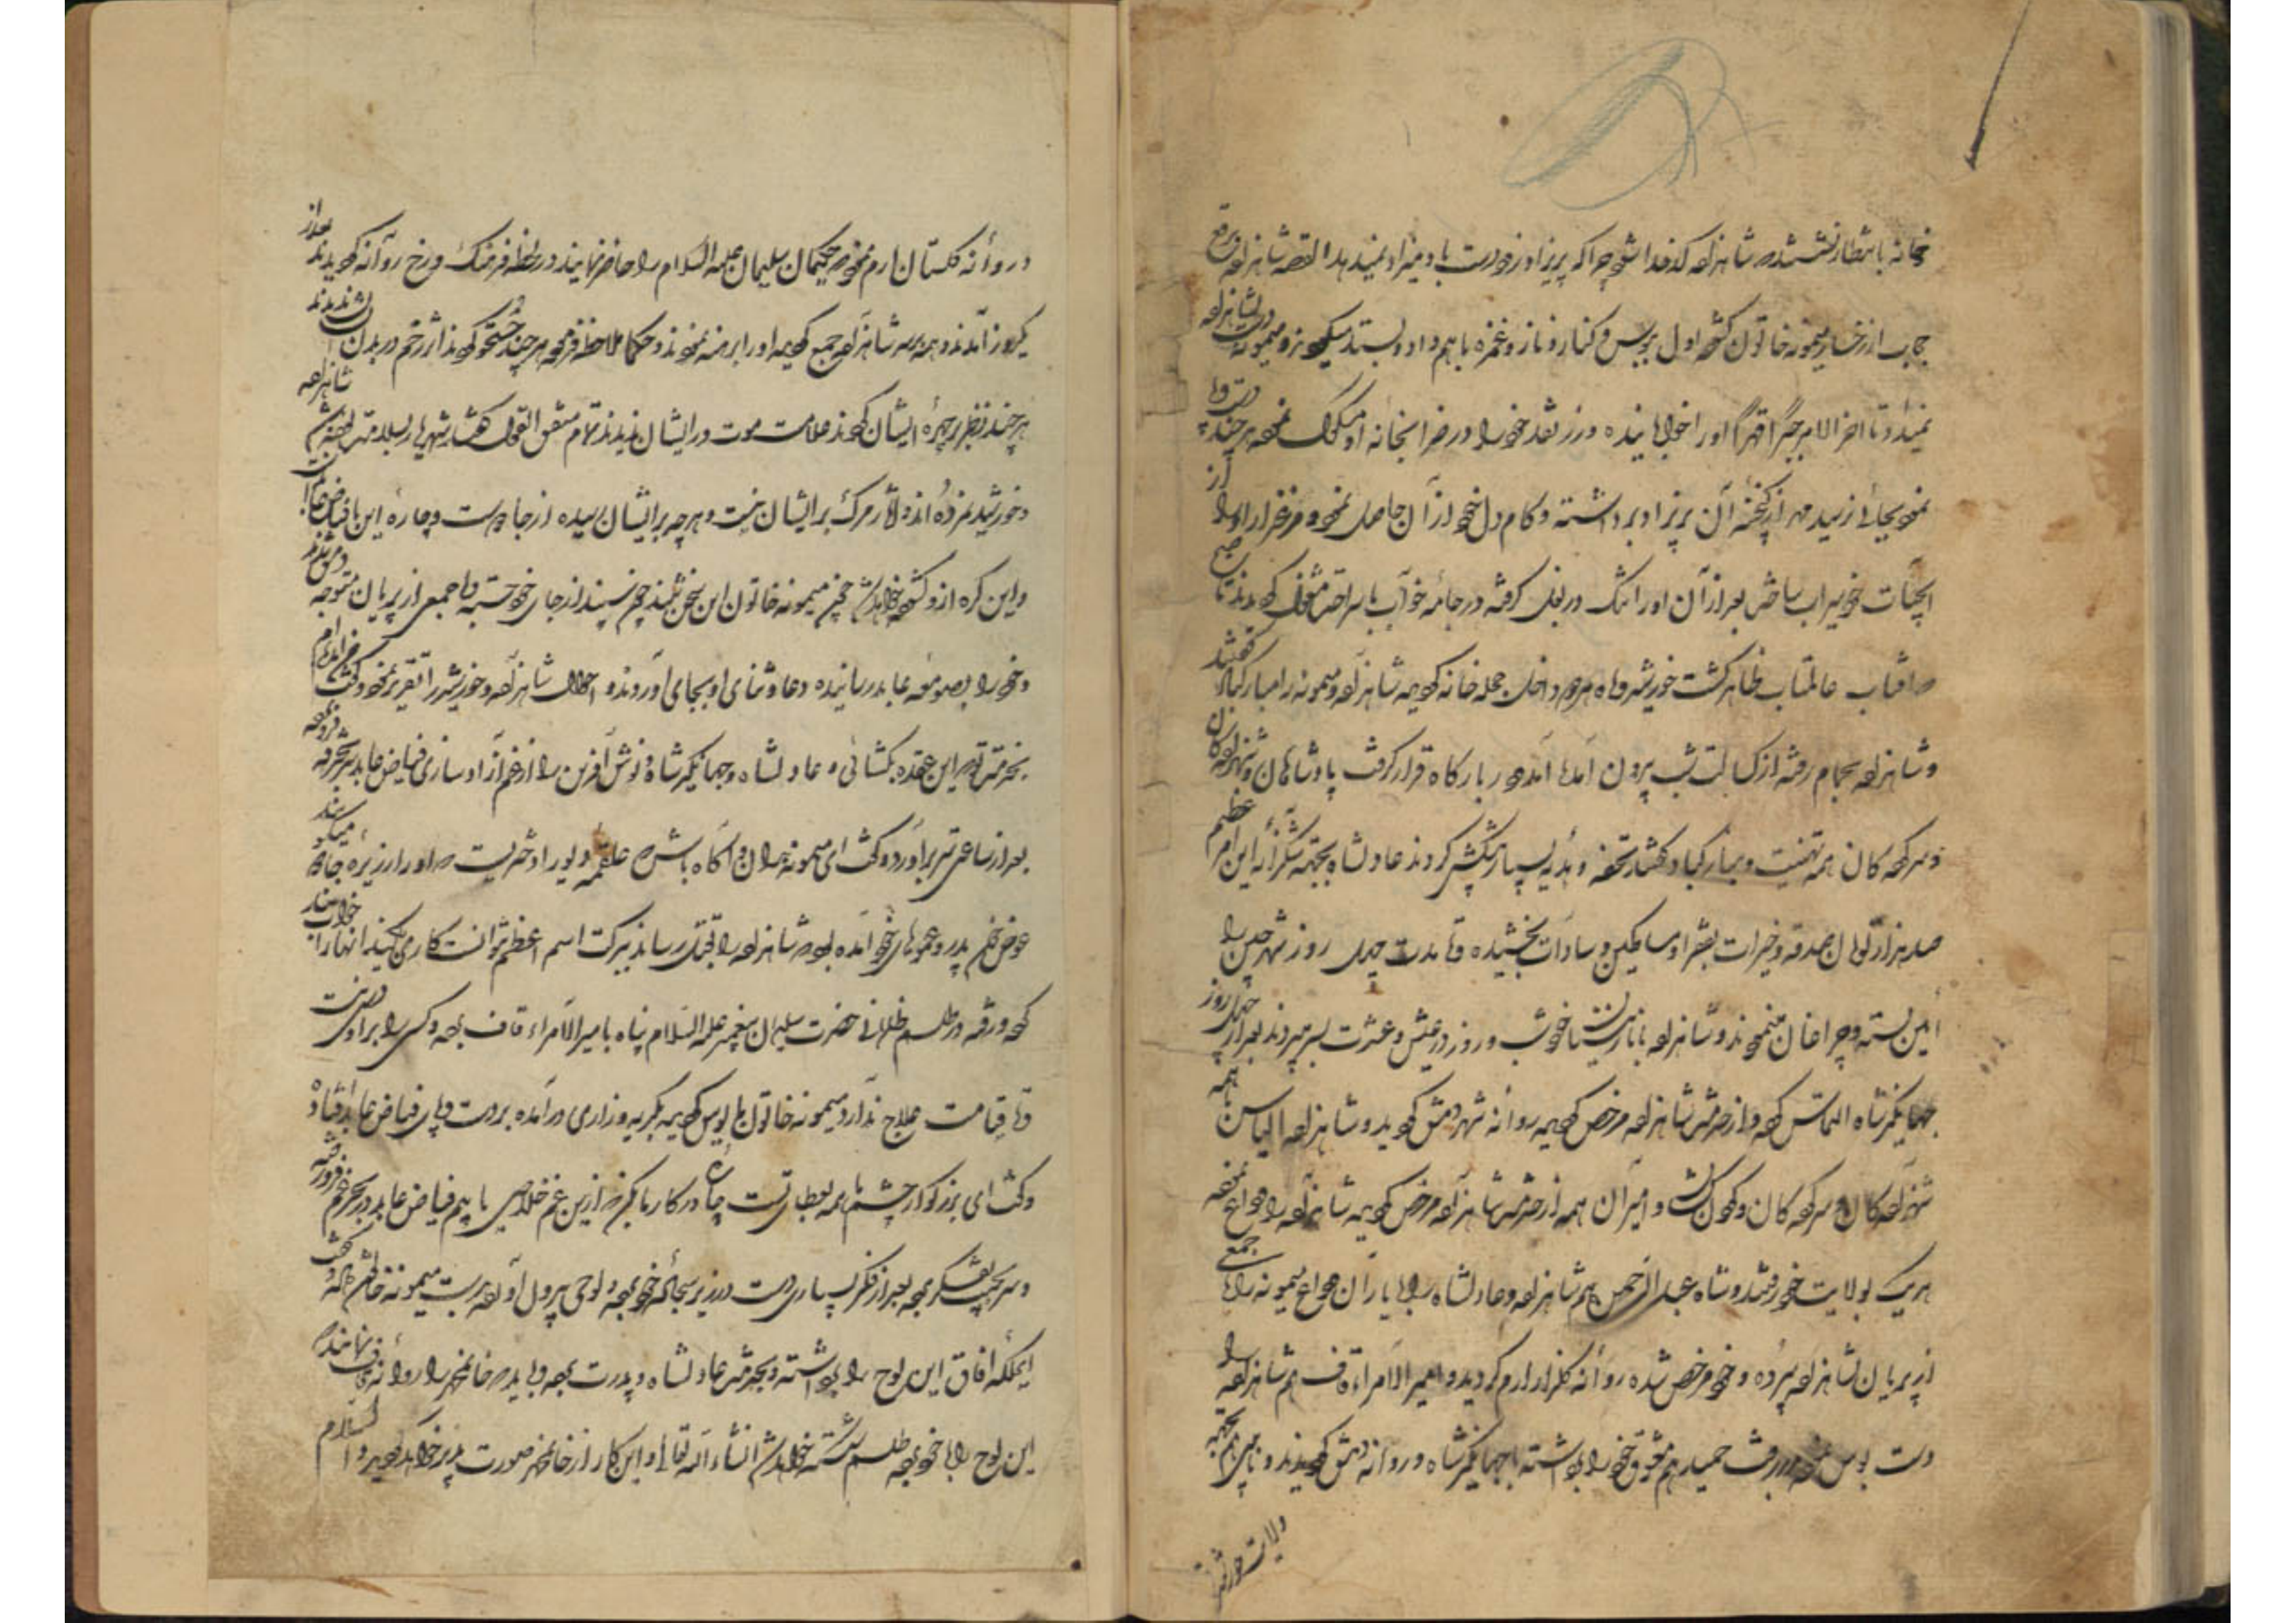 بخانه بانتظار نشستند و شاهزاده کدخدا شود چرا که پریزاد زودرست با دمیزاد نمیدهد القصه شاهزاده برقع
حجاب از رخسار میمونه خاتون کشوده اول ببوس و کنار و ناز و غمزه با هم داد و ستد میکردند و میمونه دست بشاهزاده
نمیداد تا اخر الامر جبراً قهراً اورا خوابانیده و زر نقد خود را در ضرابخانه او مسکوک نموده هر چند دست و پا
نمود بجائی نرسید مهر از گنجینه آن پریزاد برداشته و کام دل خود از آن حاصل نمود و مرغزار او را از
آبحیات خود سیراب ساخت بعد از آن او را تنگ در بغل گرفته در جامه خواب باستراحت مشغول گردیدند تا صبح
که افتاب عالمتاب ظاهر گشت خورشید و ماه هر دو داخل حجله خانه گردیده شاهزاده و میمونه را مبارکباد گفتند
و شاهزاده بحمام رفته از کسالت شب بیرون آمده آمد در بارگاه قرار گرفت پادشاهان و شهزادگان
و سرکردگان همه تهنیت و مبارکباد گفتند تحفه و هدیه بسیار پیشکش کردند عادلشاه بجهته شکرانه این امر عظیم
صد هزار تومان صدقه و خیرات بفقرا و مساکین و سادات بخشیده و تا مدت چهل روز شهر چین را
آیین بسته و چراغان مینمودند و شاهزاده با نازنینان خود شب و روز در عیش و عشرت بسر میبردند بعد از چهل روز
جهانگیرشاه التماس کرد و از خدمت شاهزاده مرخص گردیده روانه شهر دمشق گردید و شاهزاده الیاس همه
شهزادگان و سرکردگان و گردنکشان و امیران همه از خدمت شاهزاده مرخص گردیده شاهزاده را وداع نموده
هر یک بولایت خود رفتند و شاه عبدالرحمن هم شاهزاده و عادلشاه را با یاران وداع میمونه را با جمعی
از پریان بشاهزاده سپرده و خود مرخص شده روانه گلزار ارم گردید و امیر الامراء قاف هم شاهزاده را
دست بوس نموده رفت حمید هم معشوق خود را برداشته با جهانگیرشاه و روانه دمشق گردیدند و
ولایت خود رفتند
در روانه گلستان ارم نمود که حکیمان سلیمان علیه السلام را حاضر نمایند در لحظه فرهنگ و رخ روانه گردیدند بعد از
یکروز آمدند و همه بر سر شاهزاده جمع گردیده او را برهنه نمودند و حکما ملاحظه فرموده هر چند جستجو کردند اثر زخم در بدن ایشان ندیدند
هر چند نظر بر چهره ایشان کردند علامت موت در ایشان ندیدند تمام متفق القول گفتند شهریار بسلامت باشد شاهزاده
و خورشید نمرده اند و آثار مرگ بر ایشان نیست و هر چه بر ایشان رسیده از جادو است و چاره این با فیاض عابد است
و این گره از او گشوده خواهد شد چون میمونه خاتون این سخن بشنید چون سپند از جای خود جسته و با جمعی از پریان متوجه دمشق شد
و خود را بصومعه عابد رسانیده دعا و ثنای او بجای آورد و احوال شاهزاده و خورشید را تقریر نمود و گفت آمده ام
بخدمت تو که این عقده بگشائی و عادلشاه و جهانگیرشاه و نوش آفرین را از غم آزاد سازی فیاض عابد سر بجیب فرو برده
بعد از ساعتی سر برآورد و گفت ای میمونه بدان و آگاه باش که علقمه دیو را دختریست که او را زبیره جادو میگویند
عوض خون پدر و عموهای خود آمده بود که شاهزاده را بقتل رساند ببرکت اسم اعظم نتوانست کاری بکند انها را خوابانیده
کرد و رفته در طلسم ظلمانی حضرت سلیمان پیغمبر علیه السلام پناه بامیر الامراء قاف برده و کسی را بر او دستی نیست
و تا قیامت علاج ندارد میمونه خاتون مایوس گردیده بگریه و زاری درآمده بر دست و پای فیاض عابد افتاد
و گفت ای بزرگوار چشم ما همه بعطای تست چاره در کار ما بکن که ازین غم خلاصی یابیم فیاض عابد در بحر غم فرو رفته
و سر بجیب تفکر برد بعد از فکر بسیاری دست در زیر سجاده خود برده لوحی بیرون آورده بدست میمونه خاتون داد و گفت
ایملکه افاق این لوح را برداشته و بخدمت عادلشاه و پدرت برده و باید که خانمحمد را روانه قاف نمایند که
این لوح را با خود برده طلسم شکسته خواهد شد انشاء الله تعالی و این کار از خانمحمد صورت پذیر خواهد گردید والسلام